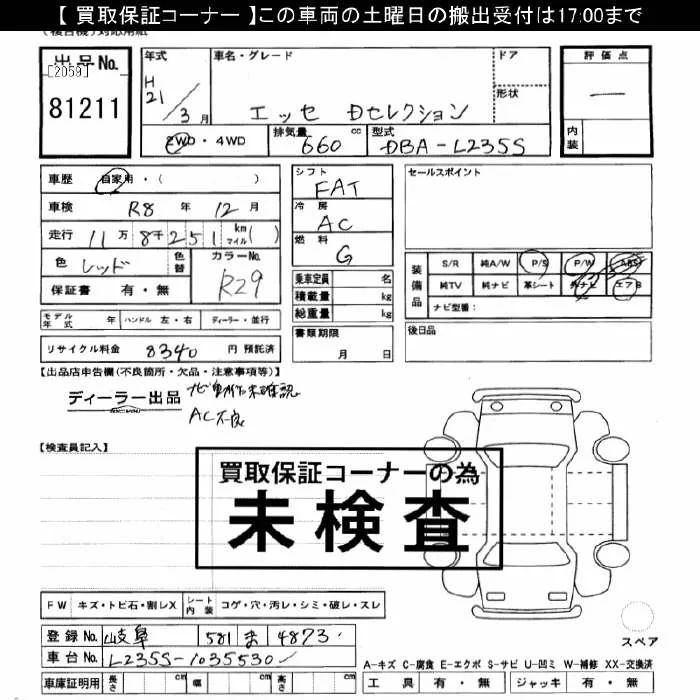 【 買取保証コーナー 】この車両の土曜日の搬出受付は17:00まで
出品No.
[2059]
81211
年式
H
21/3月
車名・グレード
エッセ Dセレクション
ドア
形状
評価点
―
内装
2WD・4WD
排気量
660 cc
型式
DBA-L235S
車歴 自家用・( )
車検 R8年 12月
走行 11万8千251 km マイル ( )
色 レッド 色替
カラーNo. R29
保証書 有・無
シフト
FAT
冷房
AC
燃料
G
乗車定員 名
積載量 kg
総重量 kg
書類期限
月 日
セールスポイント
装備品
S/R 純A/W P/S P/W ABS
純TV 純ナビ 革シート 外ナビ エアB
ナビ型番:
後日品
モデル年式 年 ハンドル 左・右 ディーラー・並行
リサイクル料金 8340 円 預託済
【出品店申告欄(不良箇所・欠品・注意事項等)】
ディーラー出品
ナビ動作未確認
AC不良
【検査員記入】
買取保証コーナーの為
未検査
FW キズ・トビ石・割レX
シート内装 コゲ・穴・汚レ・シミ・破レ・スレ
登録No. 岐阜 581 ま 4873
車台No. L235S-1035530
車庫証明用 長さ cm 幅 cm 高さ cm
スペア
A-キズ C-腐食 E-エクボ S-サビ U-凹ミ W-補修 XX-交換済
工具 有・無 ジャッキ 有・無